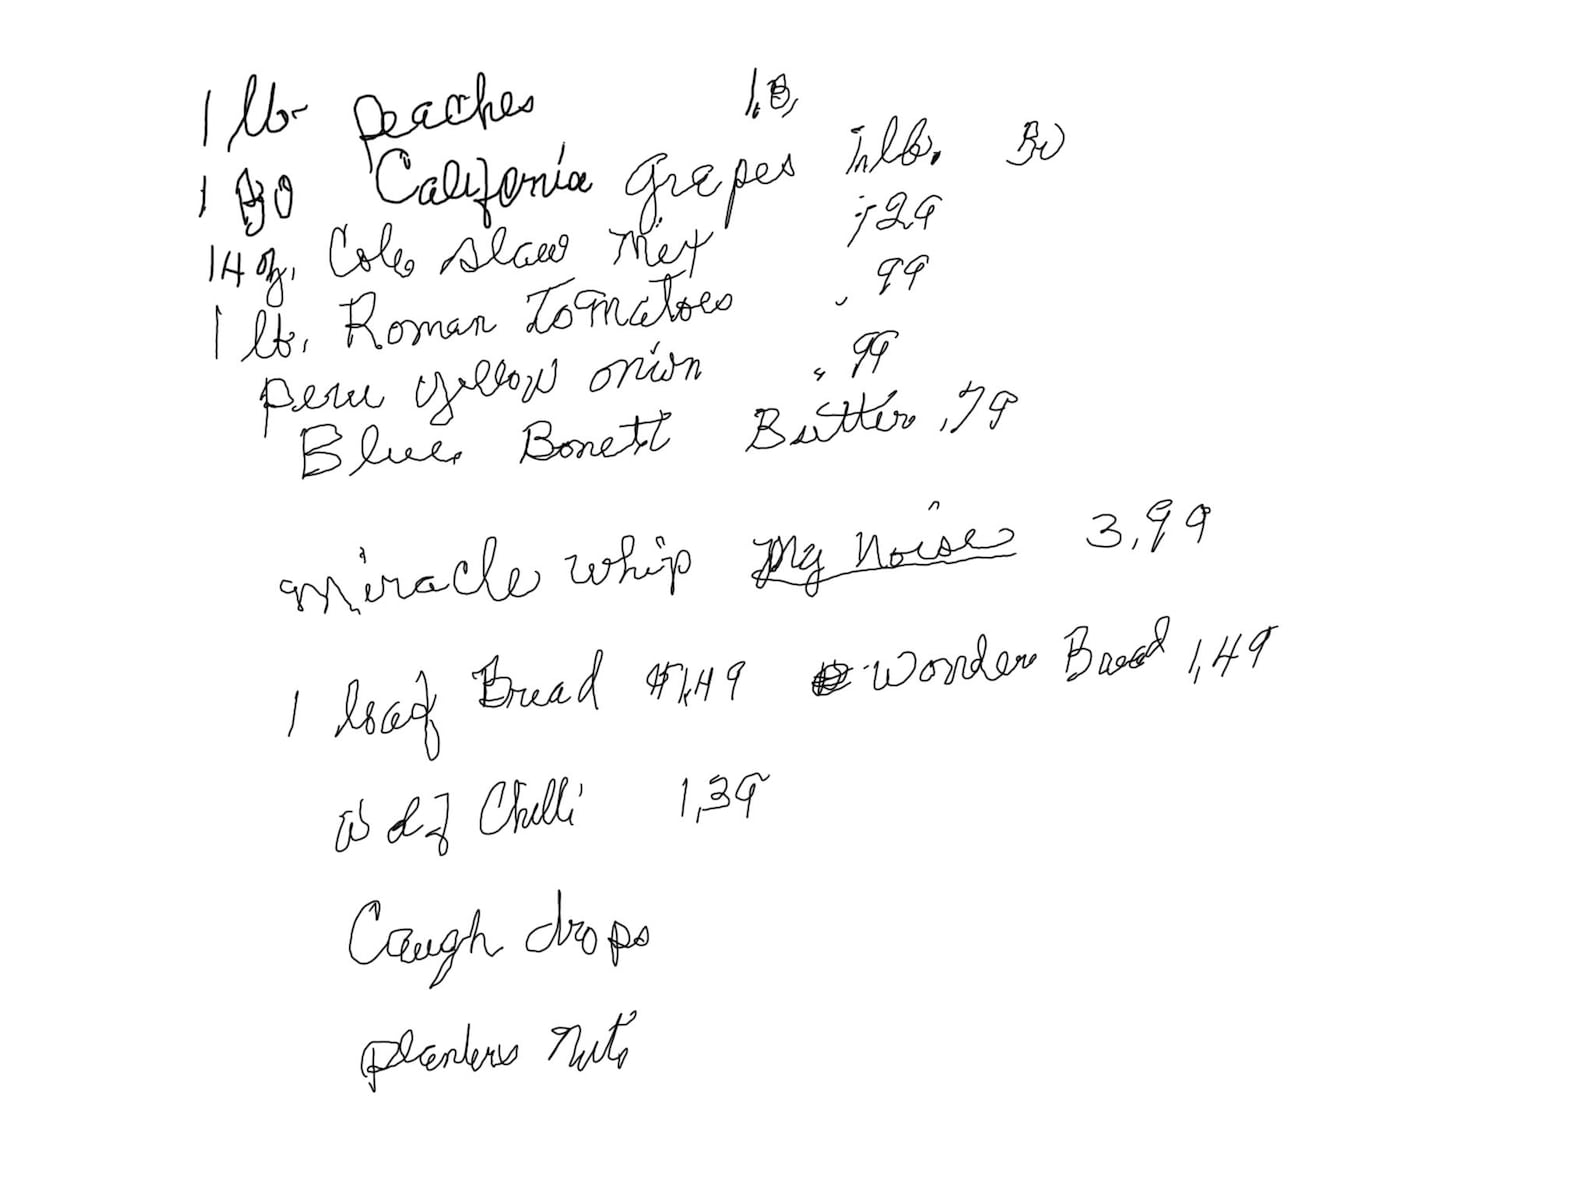 1 lb peaches
1 California grapes lb.
14 oz. Cole slaw Mix 29
1 lb. Roman Tomatoes .99
Peru yellow onion .99
Blue Bonett Butter .79
Miracle whip My Noise 3,99
1 loaf Bread $1,49 Wonder Bread 1,49
Chilli 1,39
Cough drops
planters Nuts